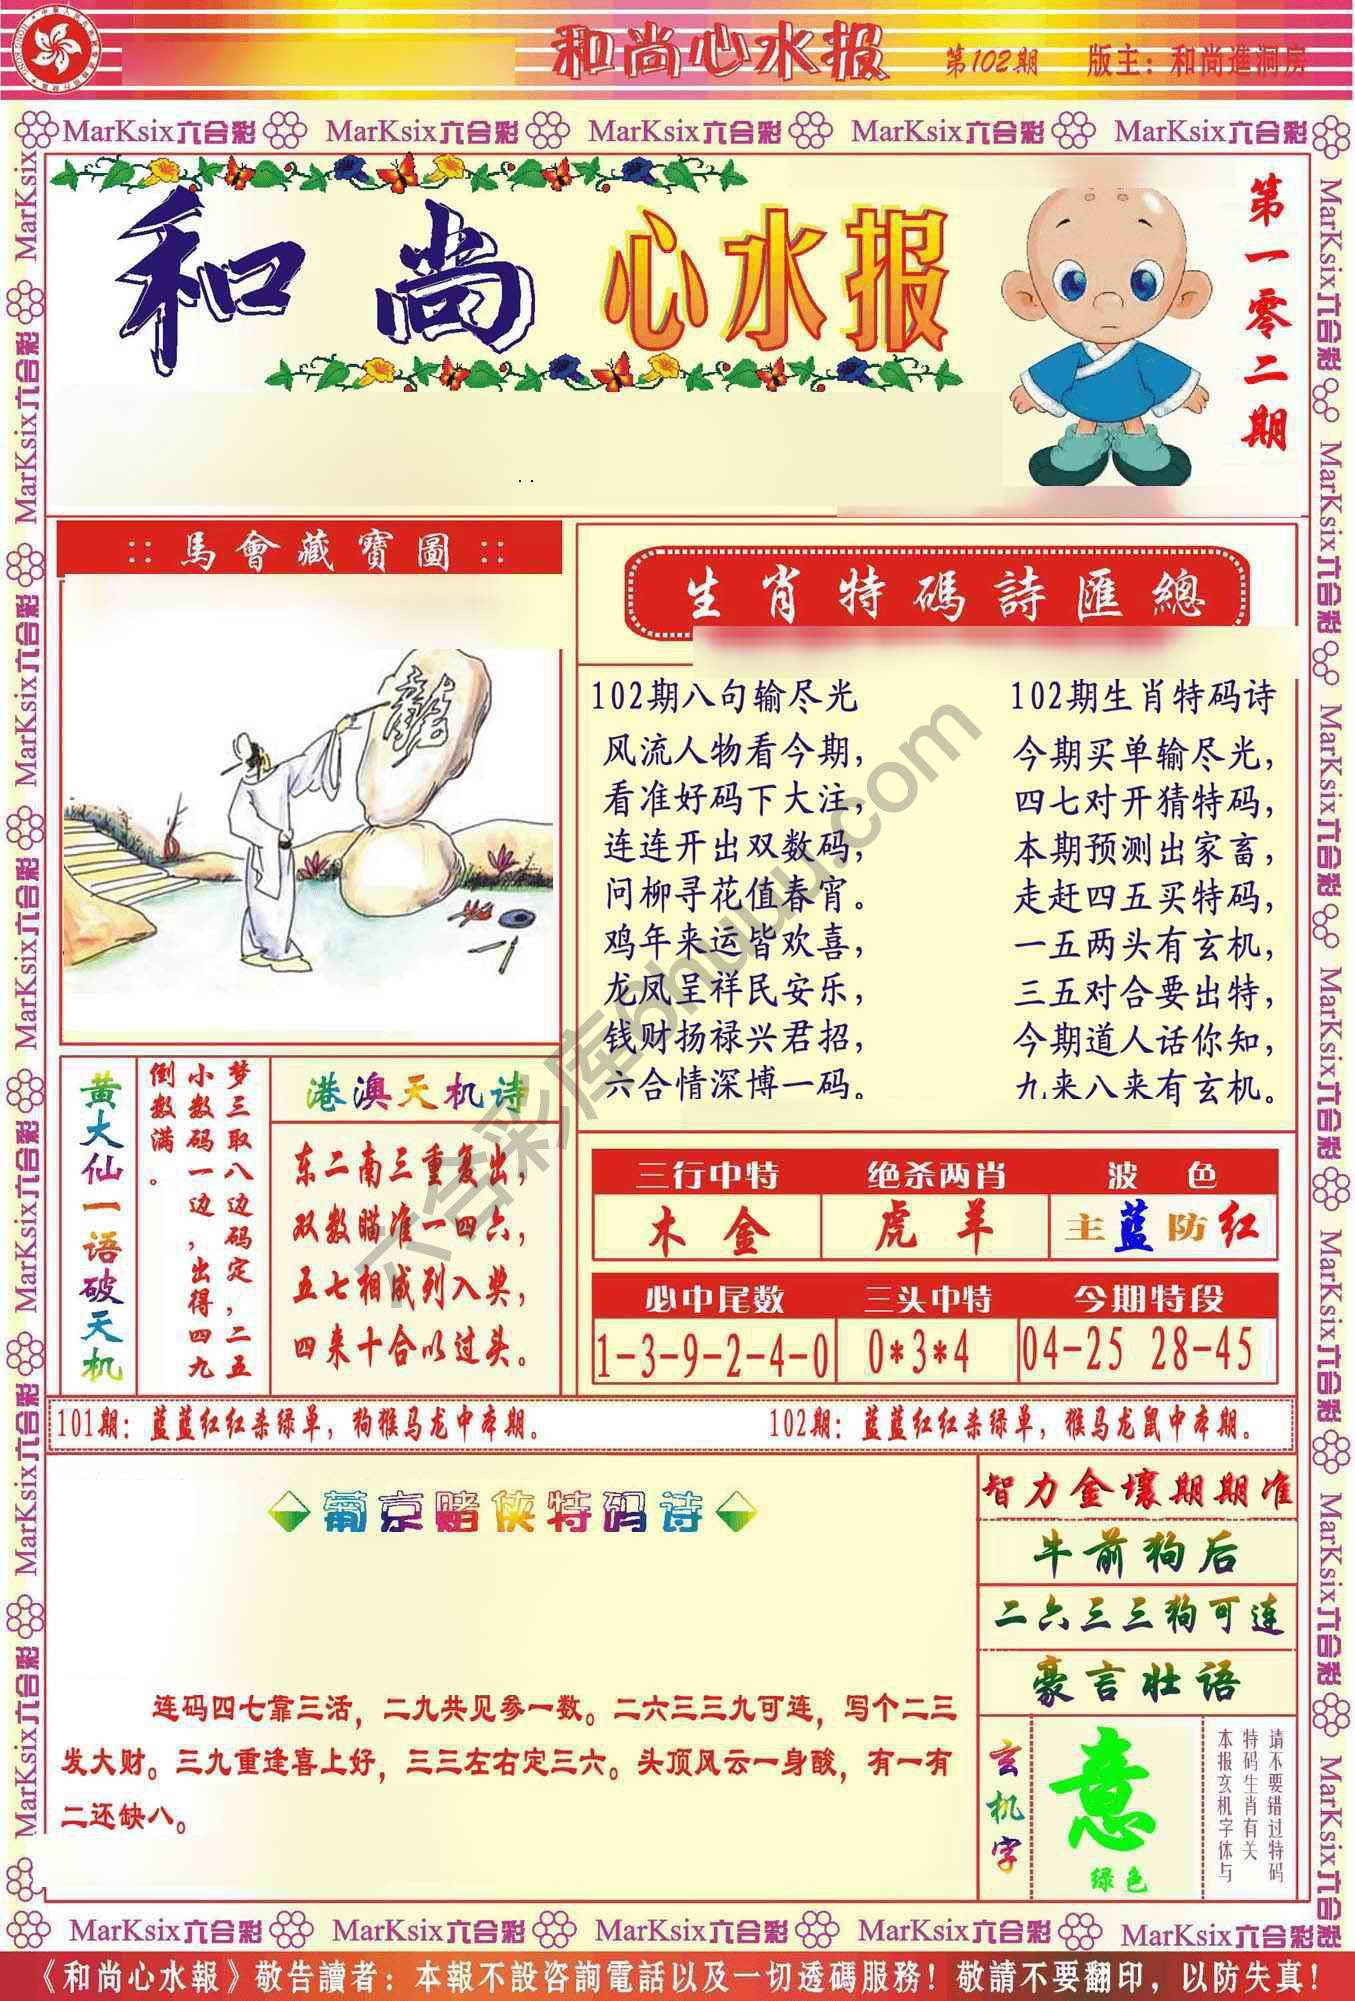 和尚心水报 第102期 版主：和尚進洞房
MarKsix六合彩 MarKsix六合彩 MarKsix六合彩 MarKsix六合彩 MarKsix六合彩
和尚心水报
第一零二期
馬會藏寶圖
生肖特碼詩匯總
102期八句输尽光
风流人物看今期，
看准好码下大注，
连连开出双数码，
问柳寻花值春宵。
鸡年来运皆欢喜，
龙凤呈祥民安乐，
钱财扬禄兴君招，
六合情深博一码。
102期生肖特码诗
今期买单输尽光，
四七对开猜特码，
本期预测出家畜，
走赶四五买特码，
一五两头有玄机，
三五对合要出特，
今期道人话你知，
九来八来有玄机。
六合彩库6huuu.com
黄大仙一语破天机
梦三取八边码定，二五
小数码一边，出得四九
倒数满。
港澳天机诗
东二南三重复出，
双数瞄准一四六，
五七相成列入奖，
四来十合以过头。
三行中特 绝杀两肖 波色
木金 虎羊 主蓝防红
必中尾数 三头中特 今期特段
1-3-9-2-4-0 0*3*4 04-25 28-45
101期：蓝蓝红红杀绿单，狗猴马龙中本期。
102期：蓝蓝红红杀绿单，猴马龙鼠中本期。
葡京赌侠特码诗
连码四七靠三活，二九共见参一数。二六三三九可连，写个二三
发大财。三九重逢喜上好，三三左右定三六。头顶风云一身酸，有一有
二还缺八。
智力金壤期期准
牛前狗后
二六三三狗可连
豪言壮语
玄机字
意
绿色
请不要错过特码
特码生肖有关
本报玄机字体与
MarKsix六合彩 MarKsix六合彩 MarKsix六合彩 MarKsix六合彩 MarKsix六合彩
《和尚心水報》敬告讀者：本報不設咨詢電話以及一切透碼服務！敬請不要翻印，以防失真！